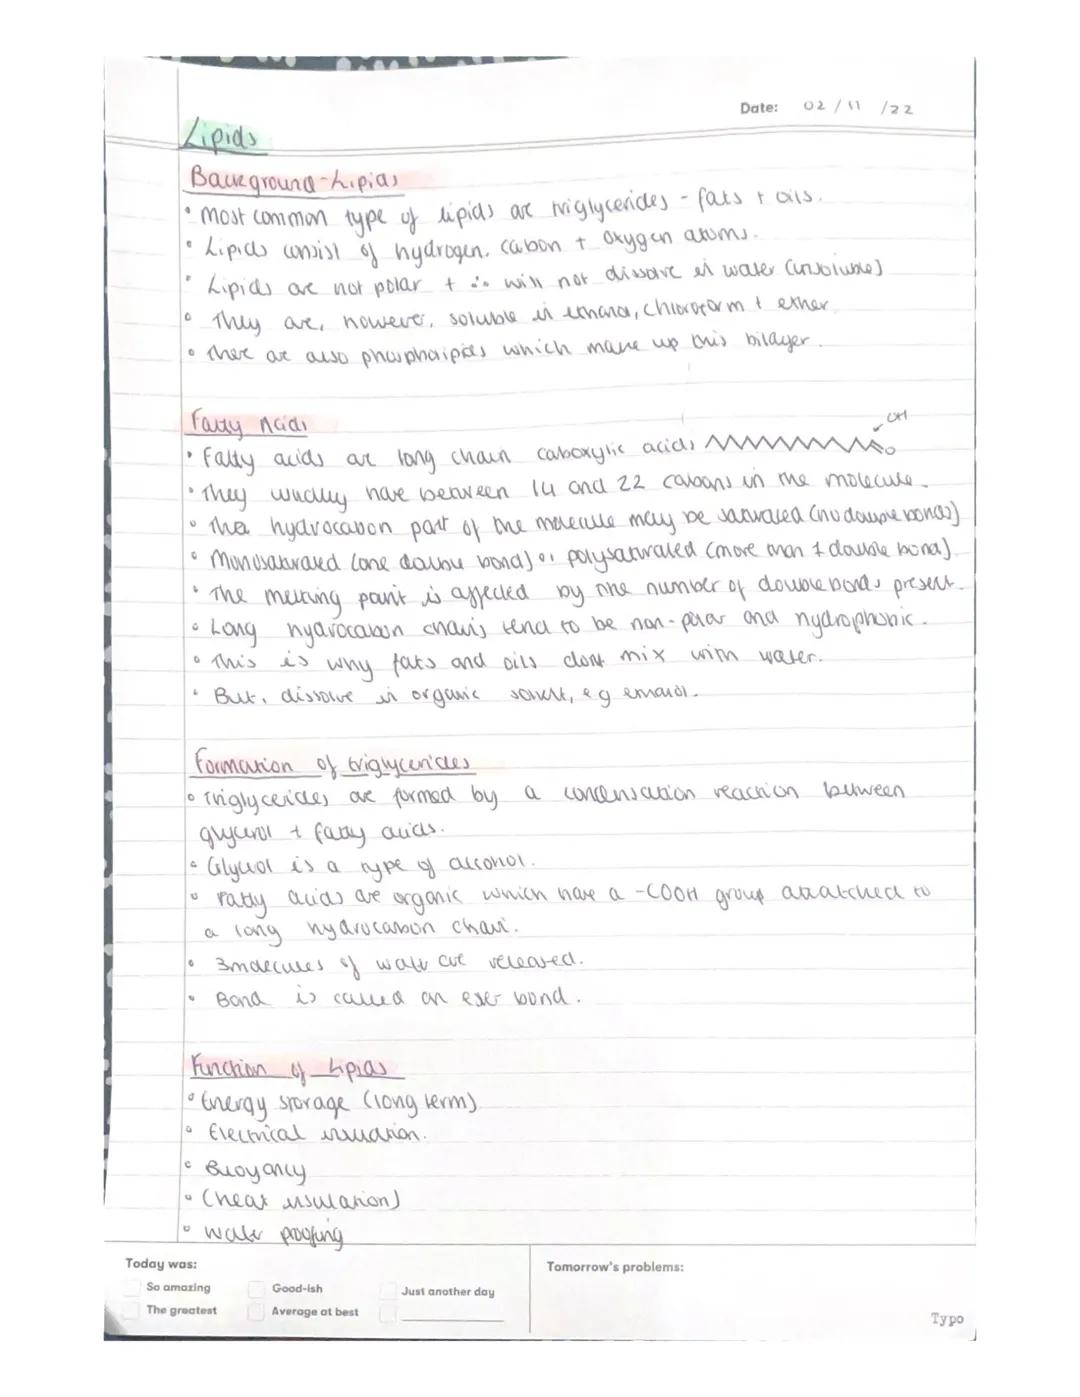 Date: 02 / 11 / 22
Lipids
Background - Lipids
• Most common type of lipids are triglycerides - fats + oils.
• Lipids consist of hydrogen, cabon + oxygen atoms.
• Lipids are not polar + ∴ will not dissolve in water (insoluble)
• They are, however, soluble in ethanol, chloroform + ether
• There are also phospholipids which make up this bilayer.
Fatty Acids
OH
• Fatty acids are long chain caboxylic acids O
• They usually have between 14 and 22 cabons in the molecule.
• The hydrocabon part of the molecule may be saturated (no double bonds)
• Monosaturated (one double bond) or polysaturated (more than 1 double bond).
• The melting point is affected by the number of double bonds present.
• Long hydrocabon chains tend to be non-polar and hydrophobic.
• This is why fats and oils dont mix with water.
• But, dissolve in organic solvent, eg ethanol.
Formation of triglycerides
• Triglycerides are formed by a condensation reaction between
glycerol + fatty acids.
• Glycerol is a type of alcohol.
• Fatty acids are organic which have a -COOH group attached to
a long hydrocarbon chain.
• 3 molecules of water are released.
• Bond is called an ester bond.
Function of Lipids
• Energy storage (long term)
• Electrical insulation.
• Buoyancy
• (heat insulation)
• water proofing
Today was:
So amazing
Good-ish
Just another day
The greatest
Average at best
Tomorrow's problems:
Typo